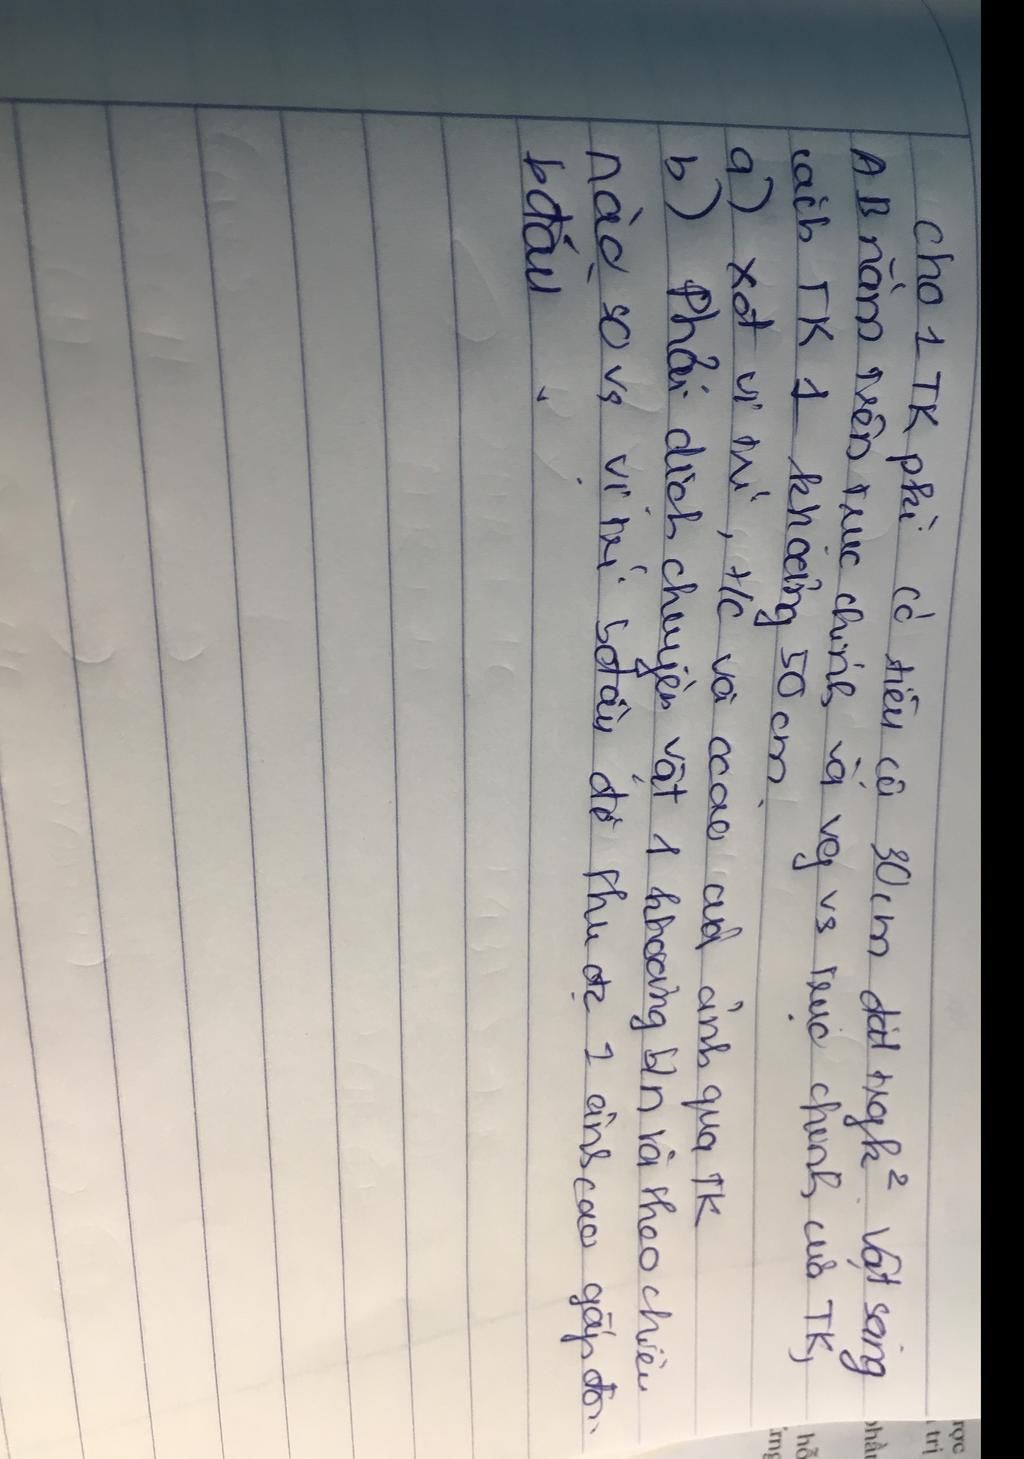 cho 1 TK phi có tiêu cự 30cm đặt trgk² vật sáng
AB nằm trên trục chính và vg vs trục chính của TK,
cách TK 1 khoảng 50cm.
a) xđ vị trí, t/c và ccao của ảnh qua TK
b) Phải dịch chuyển vật 1 khoảng bln và theo chiều
nào so vs vị trí bđầu để thu đc 1 ảnh cao gấp đôi
bđầu
ược
trị
phầ
hỗ